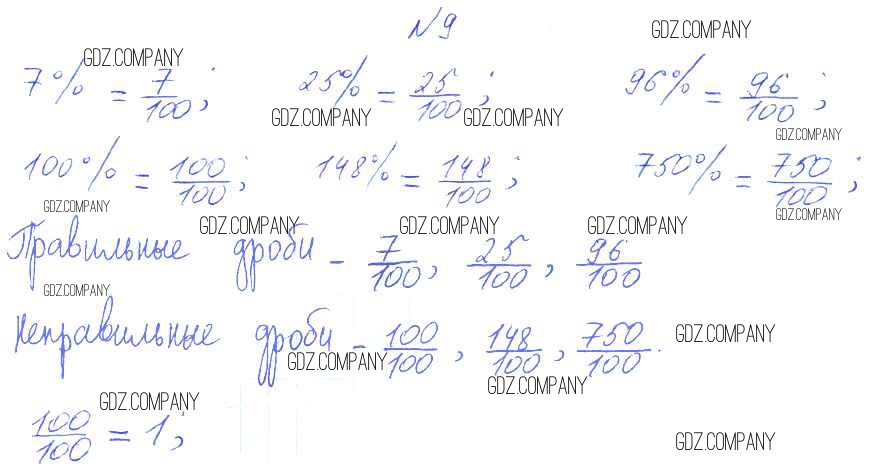 №9
GDZ.COMPANY
GDZ.COMPANY
7% = 7/100; 25% = 25/100; 96% = 96/100;
GDZ.COMPANY GDZ.COMPANY
GDZ.COMPANY
100% = 100/100; 148% = 148/100; 750% = 750/100;
GDZ.COMPANY
GDZ.COMPANY
GDZ.COMPANY GDZ.COMPANY GDZ.COMPANY
Правильные дроби – 7/100, 25/100, 96/100
GDZ.COMPANY
Неправильные дроби – 100/100, 148/100, 750/100.
GDZ.COMPANY
GDZ.COMPANY
GDZ.COMPANY
GDZ.COMPANY
100/100 = 1;
GDZ.COMPANY